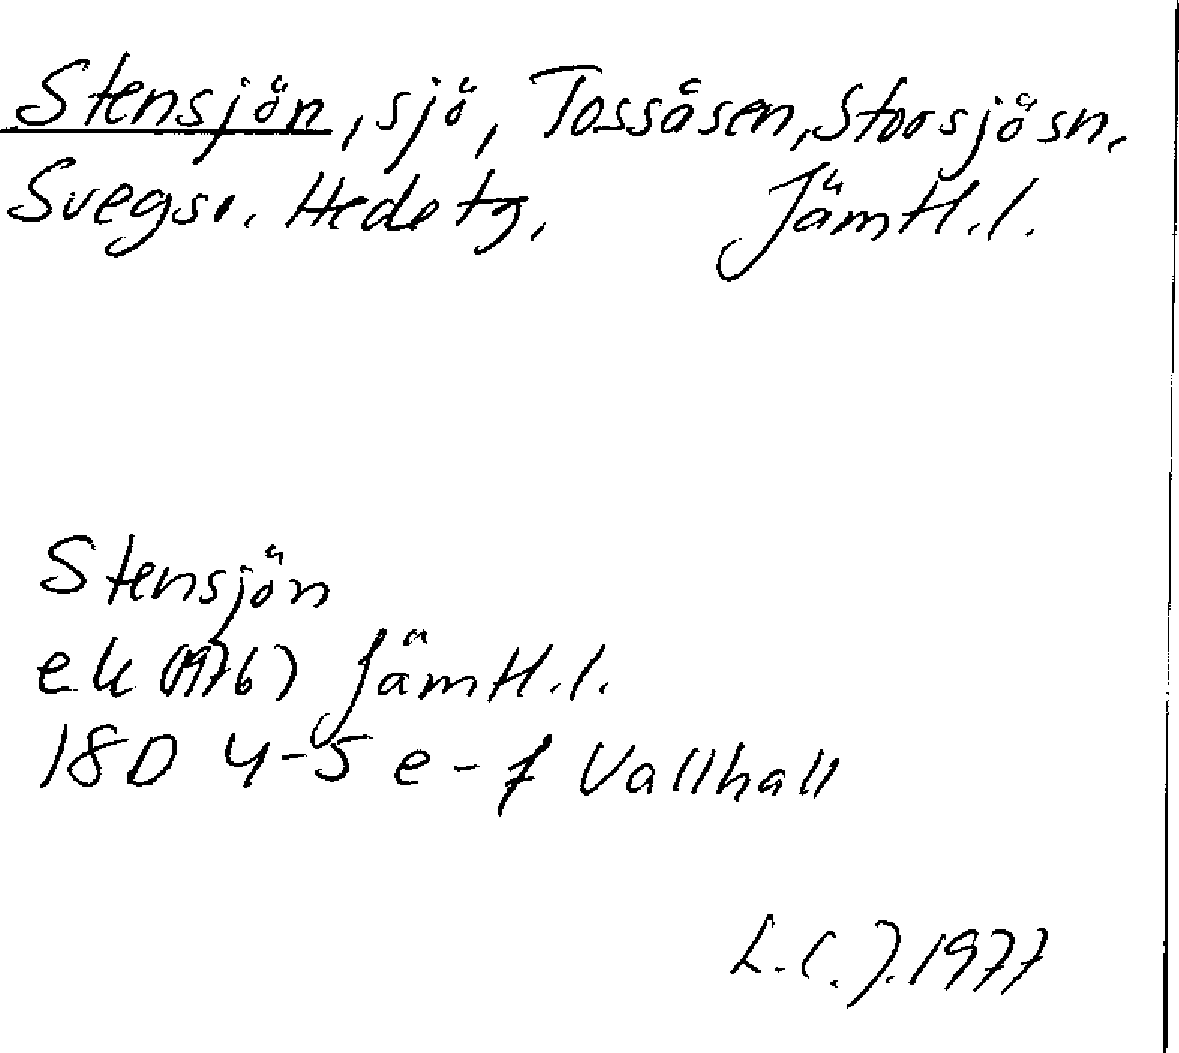 Stensjön, sjö, Tossåsen, Storsjö sn.
Svegs r. Hede tg. Jämtl. l.
Stensjön
ek (1976) Jämtl. l.
18D 4-5 e-f Vallhall
L.C.J. 1977